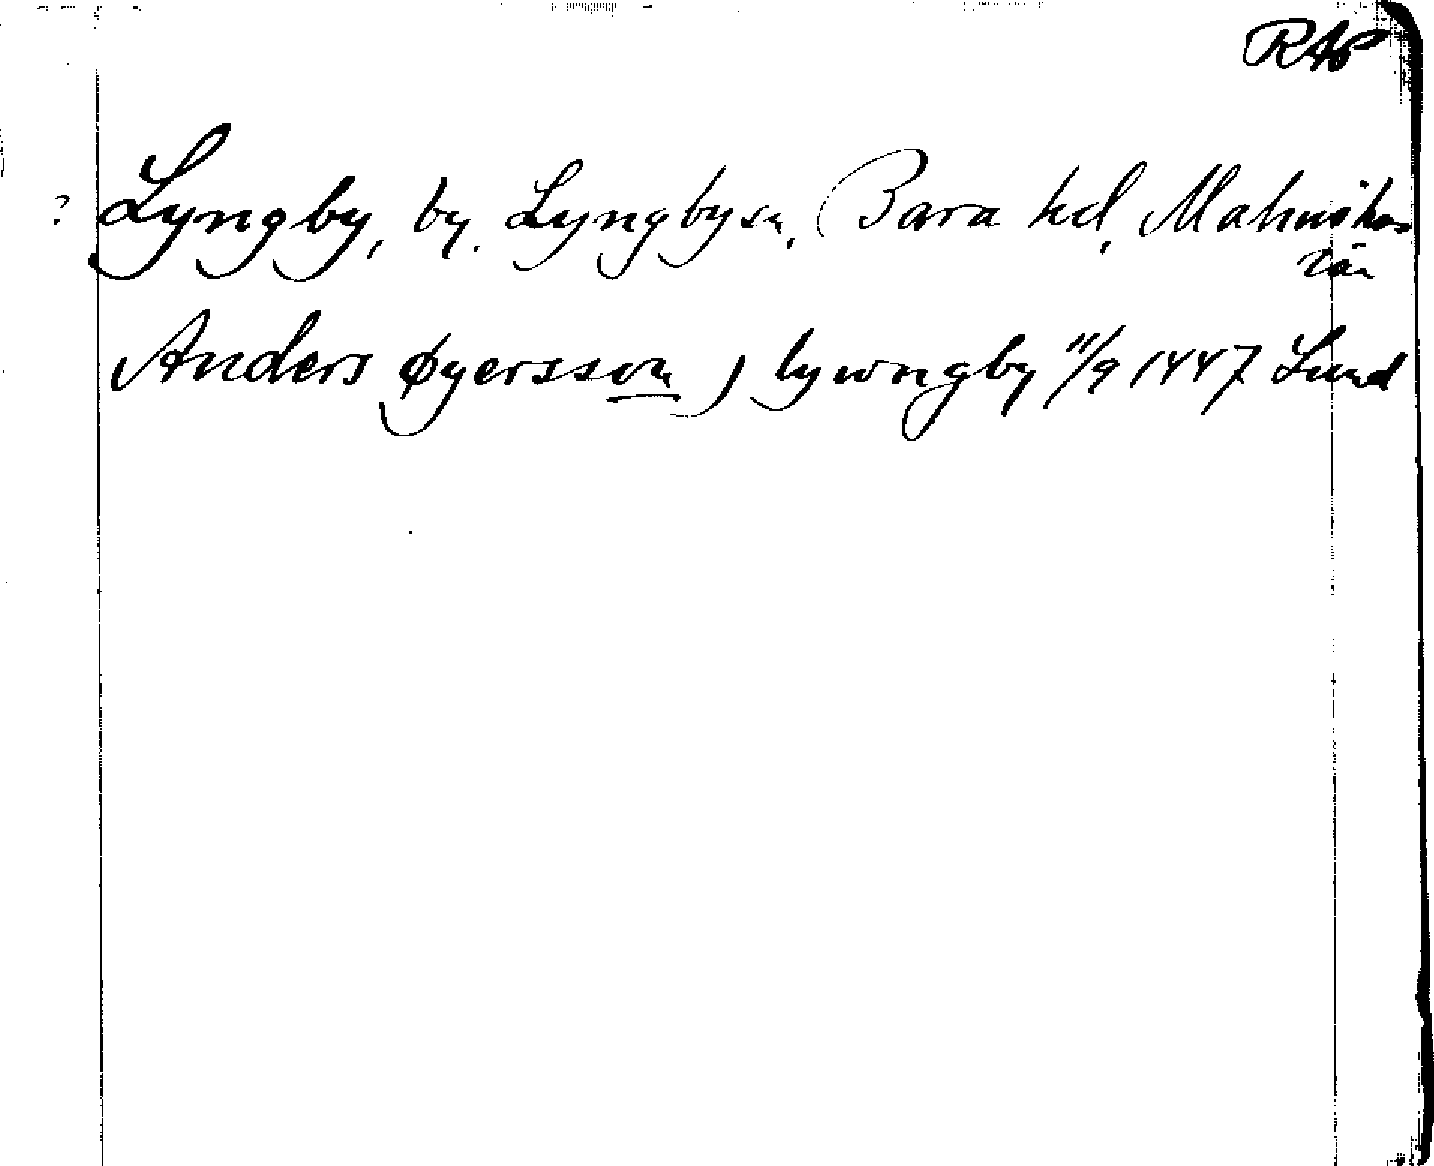 RAP
? Lyngby, by. Lyngby sn, Bara hd, Malmöhus
län
Anders Øyersson j lywngby 11/9 1447 Lund